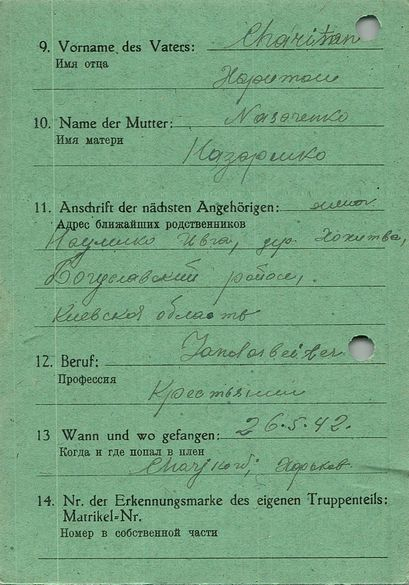 9. Vorname des Vaters: Charitan
Имя отца
Харитон
10. Name der Mutter: Nasarenko
Имя матери
Назаренко
11. Anschrift der nächsten Angehörigen: жена
Адрес ближайших родственников
Ивга, дер Хохитва,
Богуславский район,
Киевская область
12. Beruf: Landarbeiter
Профессия
Крестьянин
13 Wann und wo gefangen: 26.5.42.
Когда и где попал в плен
Charjkow, Харьков
14. Nr. der Erkennungsmarke des eigenen Truppenteils:
Matrikel=Nr.
Номер в собственной части